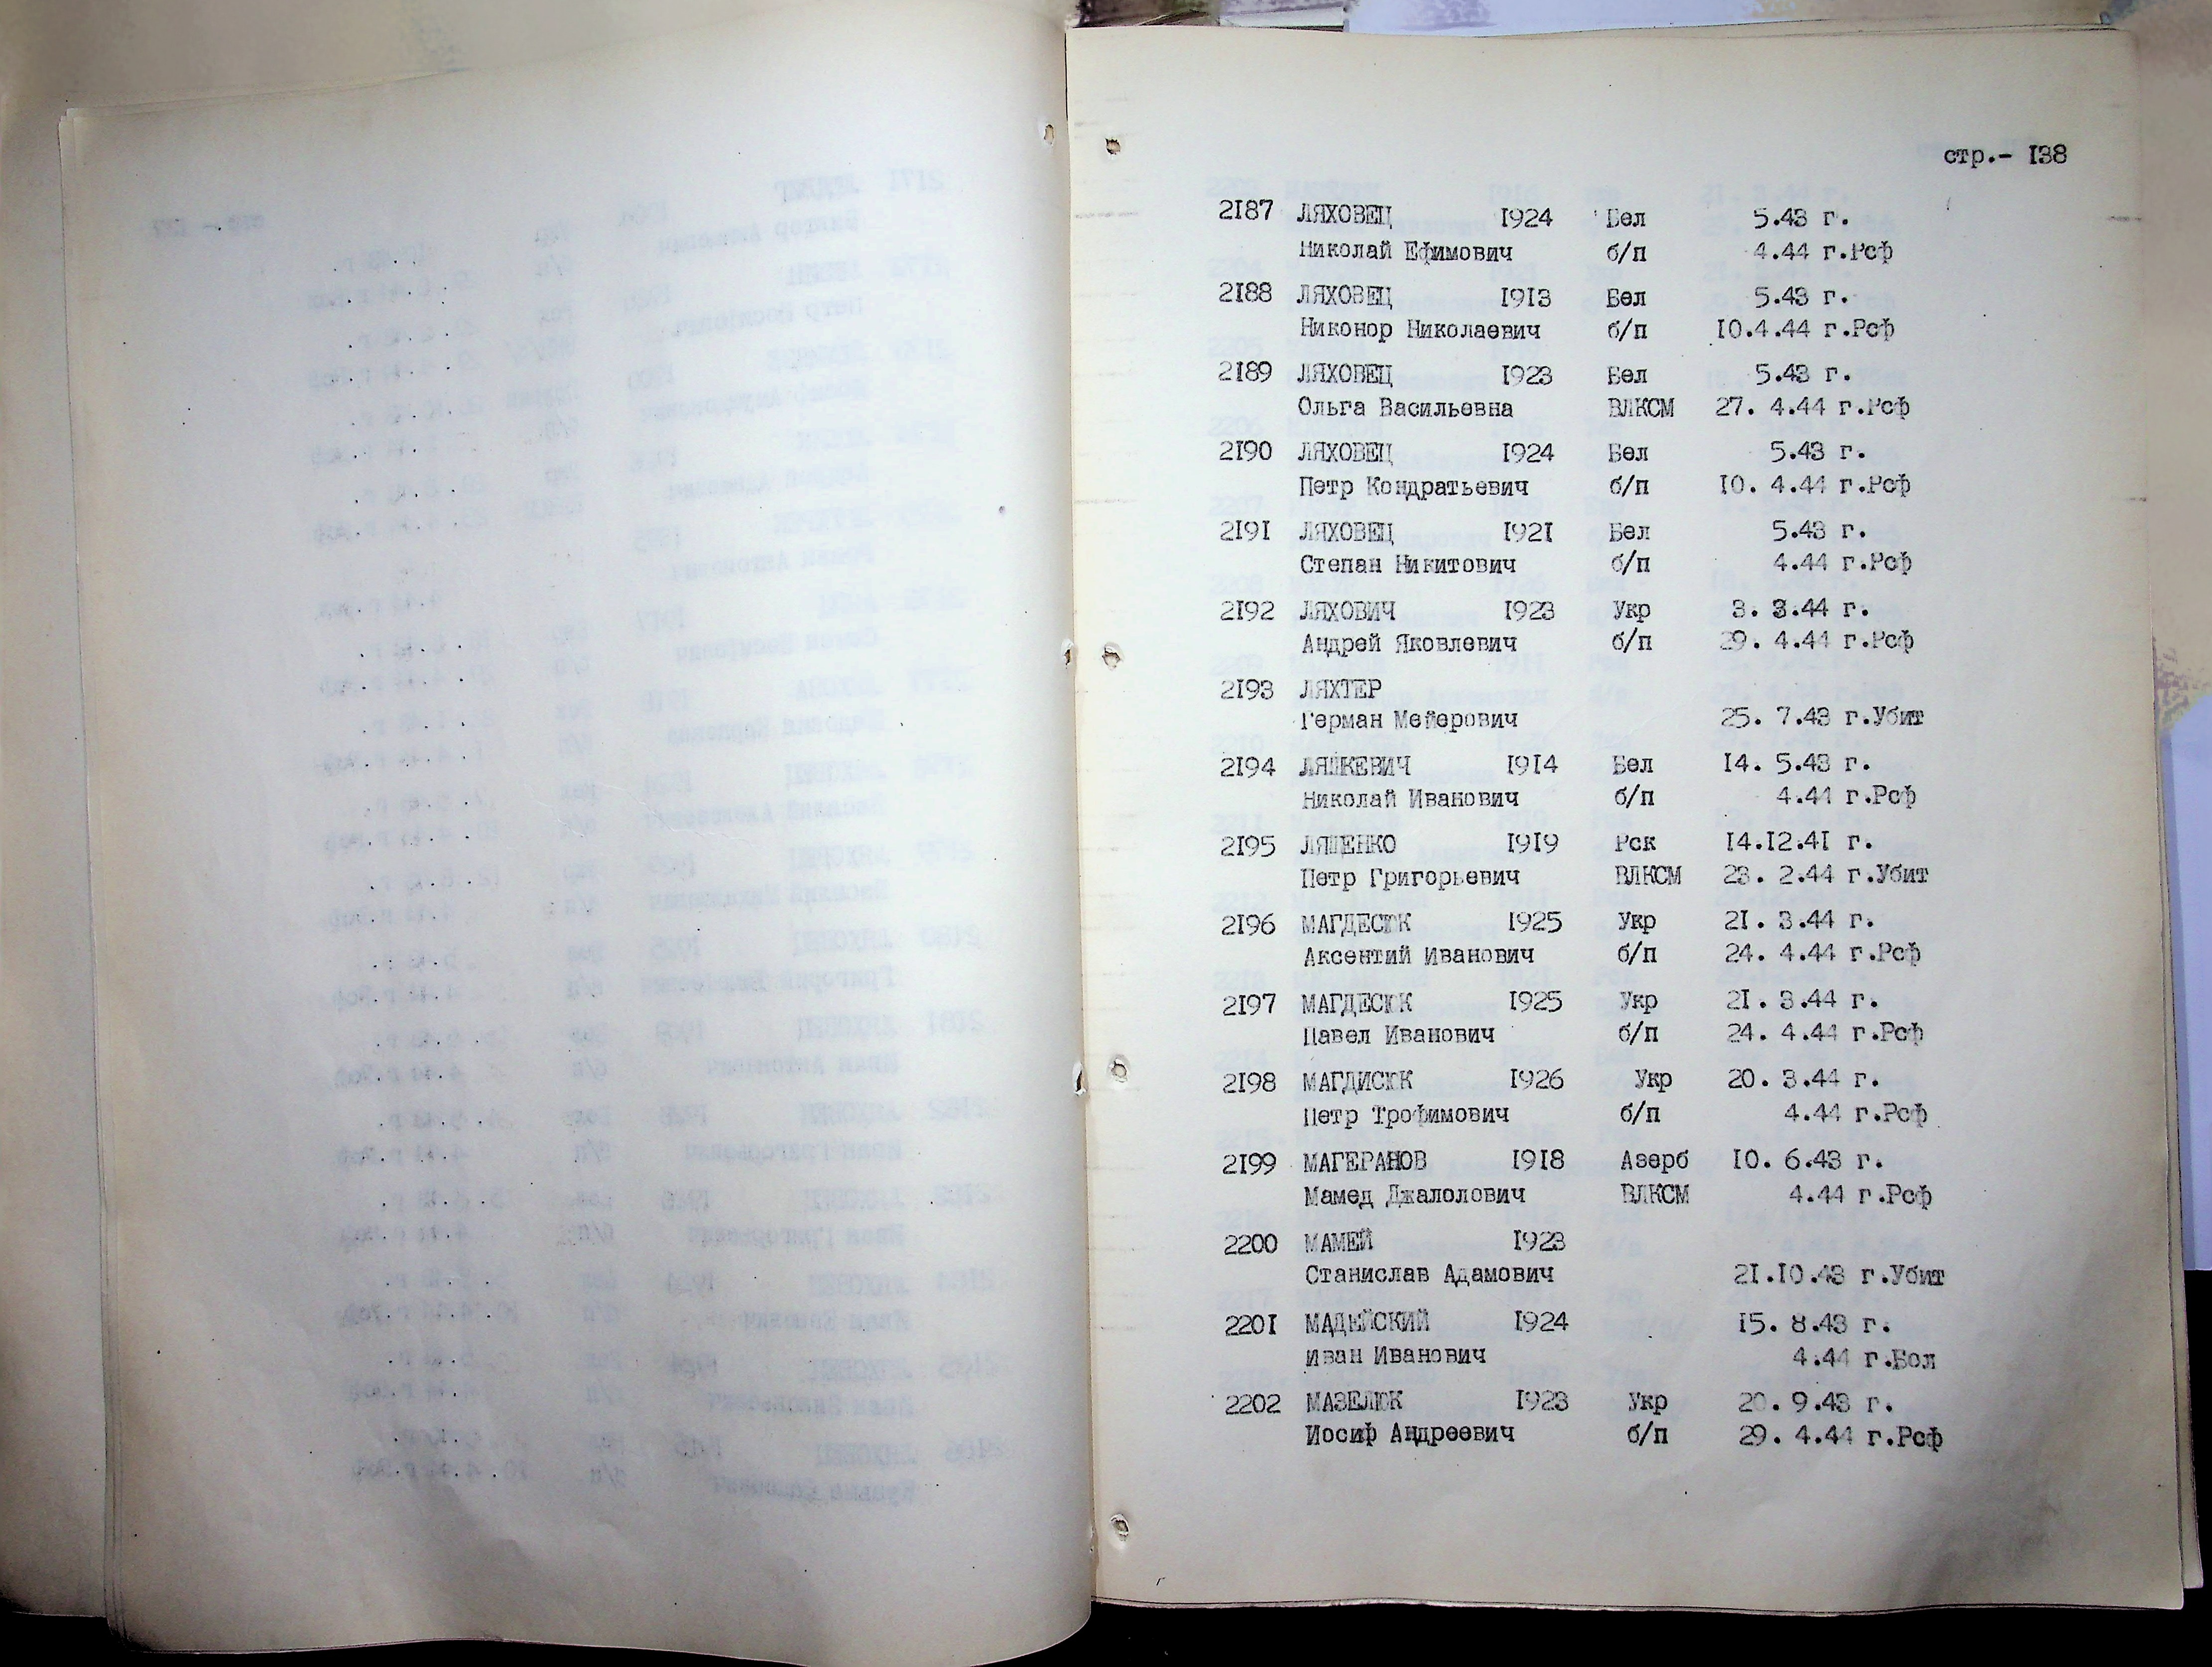 стр.- I38
2I87 ЛЯХОВЕЦ I924 Бел 5.43 г.
Николай Ефимович б/п 4.44 г.Рсф
2I88 ЛЯХОВЕЦ I9I3 Бел 5.43 г.
Никонор Николаевич б/п I0.4.44 г.Рсф
2I89 ЛЯХОВЕЦ I923 Бел 5.43 г.
Ольга Васильевна ВЛКСМ 27. 4.44 г.Рсф
2I90 ЛЯХОВЕЦ I924 Бел 5.43 г.
Петр Кондратьевич б/п I0. 4.44 г.Рсф
2I9I ЛЯХОВЕЦ I92I Бел 5.43 г.
Степан Никитович б/п 4.44 г.Рсф
2I92 ЛЯХОВИЧ I923 Укр 3. 3.44 г.
Андрей Яковлевич б/п 29. 4.44 г.Рсф
2I93 ЛЯХТЕР
Герман Мейерович 25. 7.43 г.Убит
2I94 ЛЯШКЕВИЧ I9I4 Бел I4. 5.43 г.
Николай Иванович б/п 4.44 г.Рсф
2I95 ЛЯШЕНКО I9I9 Рск I4.I2.4I г.
Петр Григорьевич ВЛКСМ 23. 2.44 г.Убит
2I96 МАГДЕСЮК I925 Укр 2I. 3.44 г.
Аксентий Иванович б/п 24. 4.44 г.Рсф
2I97 МАГДЕСЮК I925 Укр 2I. 3.44 г.
Павел Иванович б/п 24. 4.44 г.Рсф
2I98 МАГДИСЮК I926 Укр 20. 3.44 г.
Петр Трофимович б/п 4.44 г.Рсф
2I99 МАГЕРАНОВ I9I8 Азерб I0. 6.43 г.
Мамед Джалолович ВЛКСМ 4.44 г.Рсф
2200 МАМЕЙ I923
Станислав Адамович 2I.I0.43 г.Убит
220I МАДЕЙСКИЙ I924 I5. 8.43 г.
Иван Иванович 4.44 г.Бол
2202 МАЗЕЛЮК I923 Укр 20. 9.43 г.
Иосиф Андреевич б/п 29. 4.44 г.Рсф